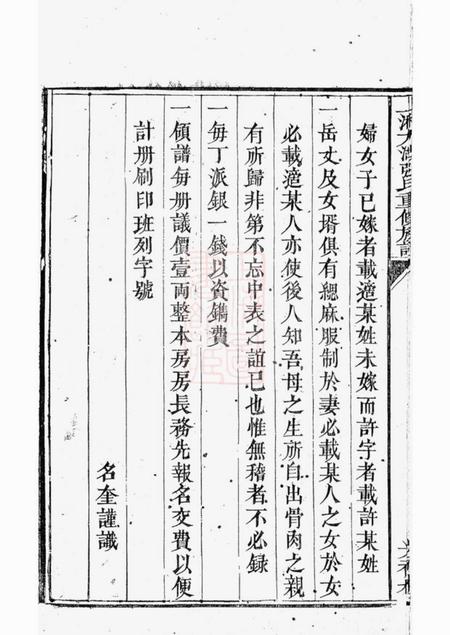 婦女子已嫁者載適某姓未嫁而許字者載許某姓
一岳丈及女壻俱有緦麻服制於妻必載某人之女於女
必載適某人亦使後人知吾母之生所自出骨肉之親
有所歸非第不忘中表之誼已也惟無稽者不必錄
一每丁派銀一錢以資鐫費
一領譜每册議價壹兩整本房房長務先報名交費以便
計册刷印班列字號
名奎謹識